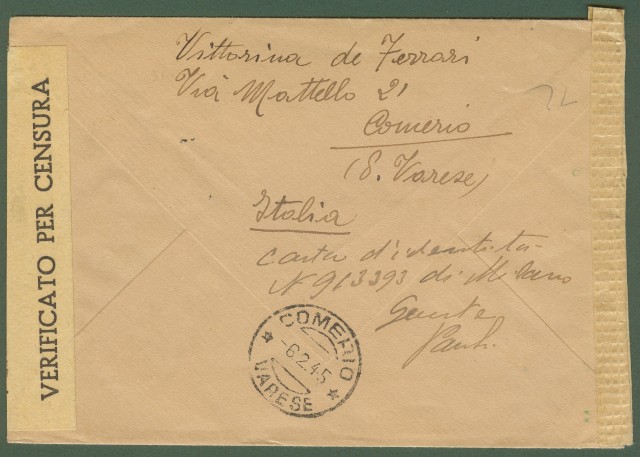 VERIFICATO PER CENSURA
Vittorina de Ferrari
Via Mattello 21
Comerio
(S. Varese)
Italia
carta d'identità
N 913393 di Milano
COMERIO
-6.2.45
VARESE